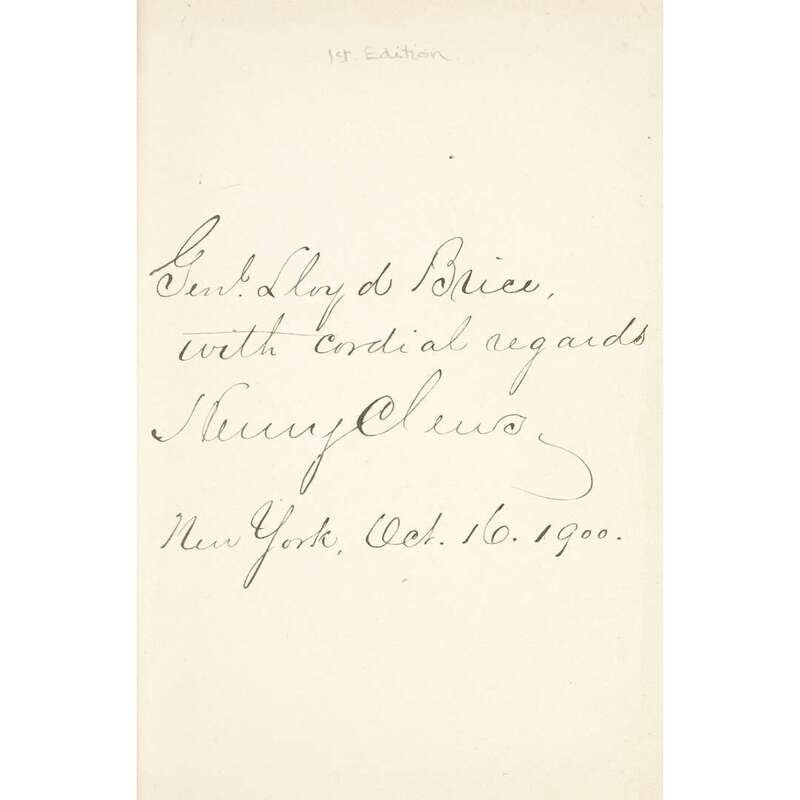 1st. Edition
Genl. Lloyd Brice,
with cordial regards
Henry Clews,
New York, Oct. 16. 1900.